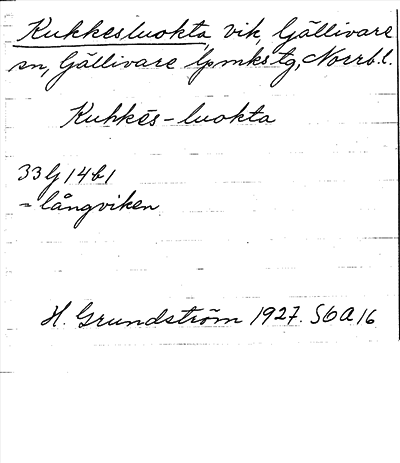 Kukkesluokta, vik, Gällivare
sn, Gällivare lpmkstg, Norrb.l.
Kuhkēs-luokta
33 G 14 b 1
= långviken.
H. Grundström 1927. S6A16